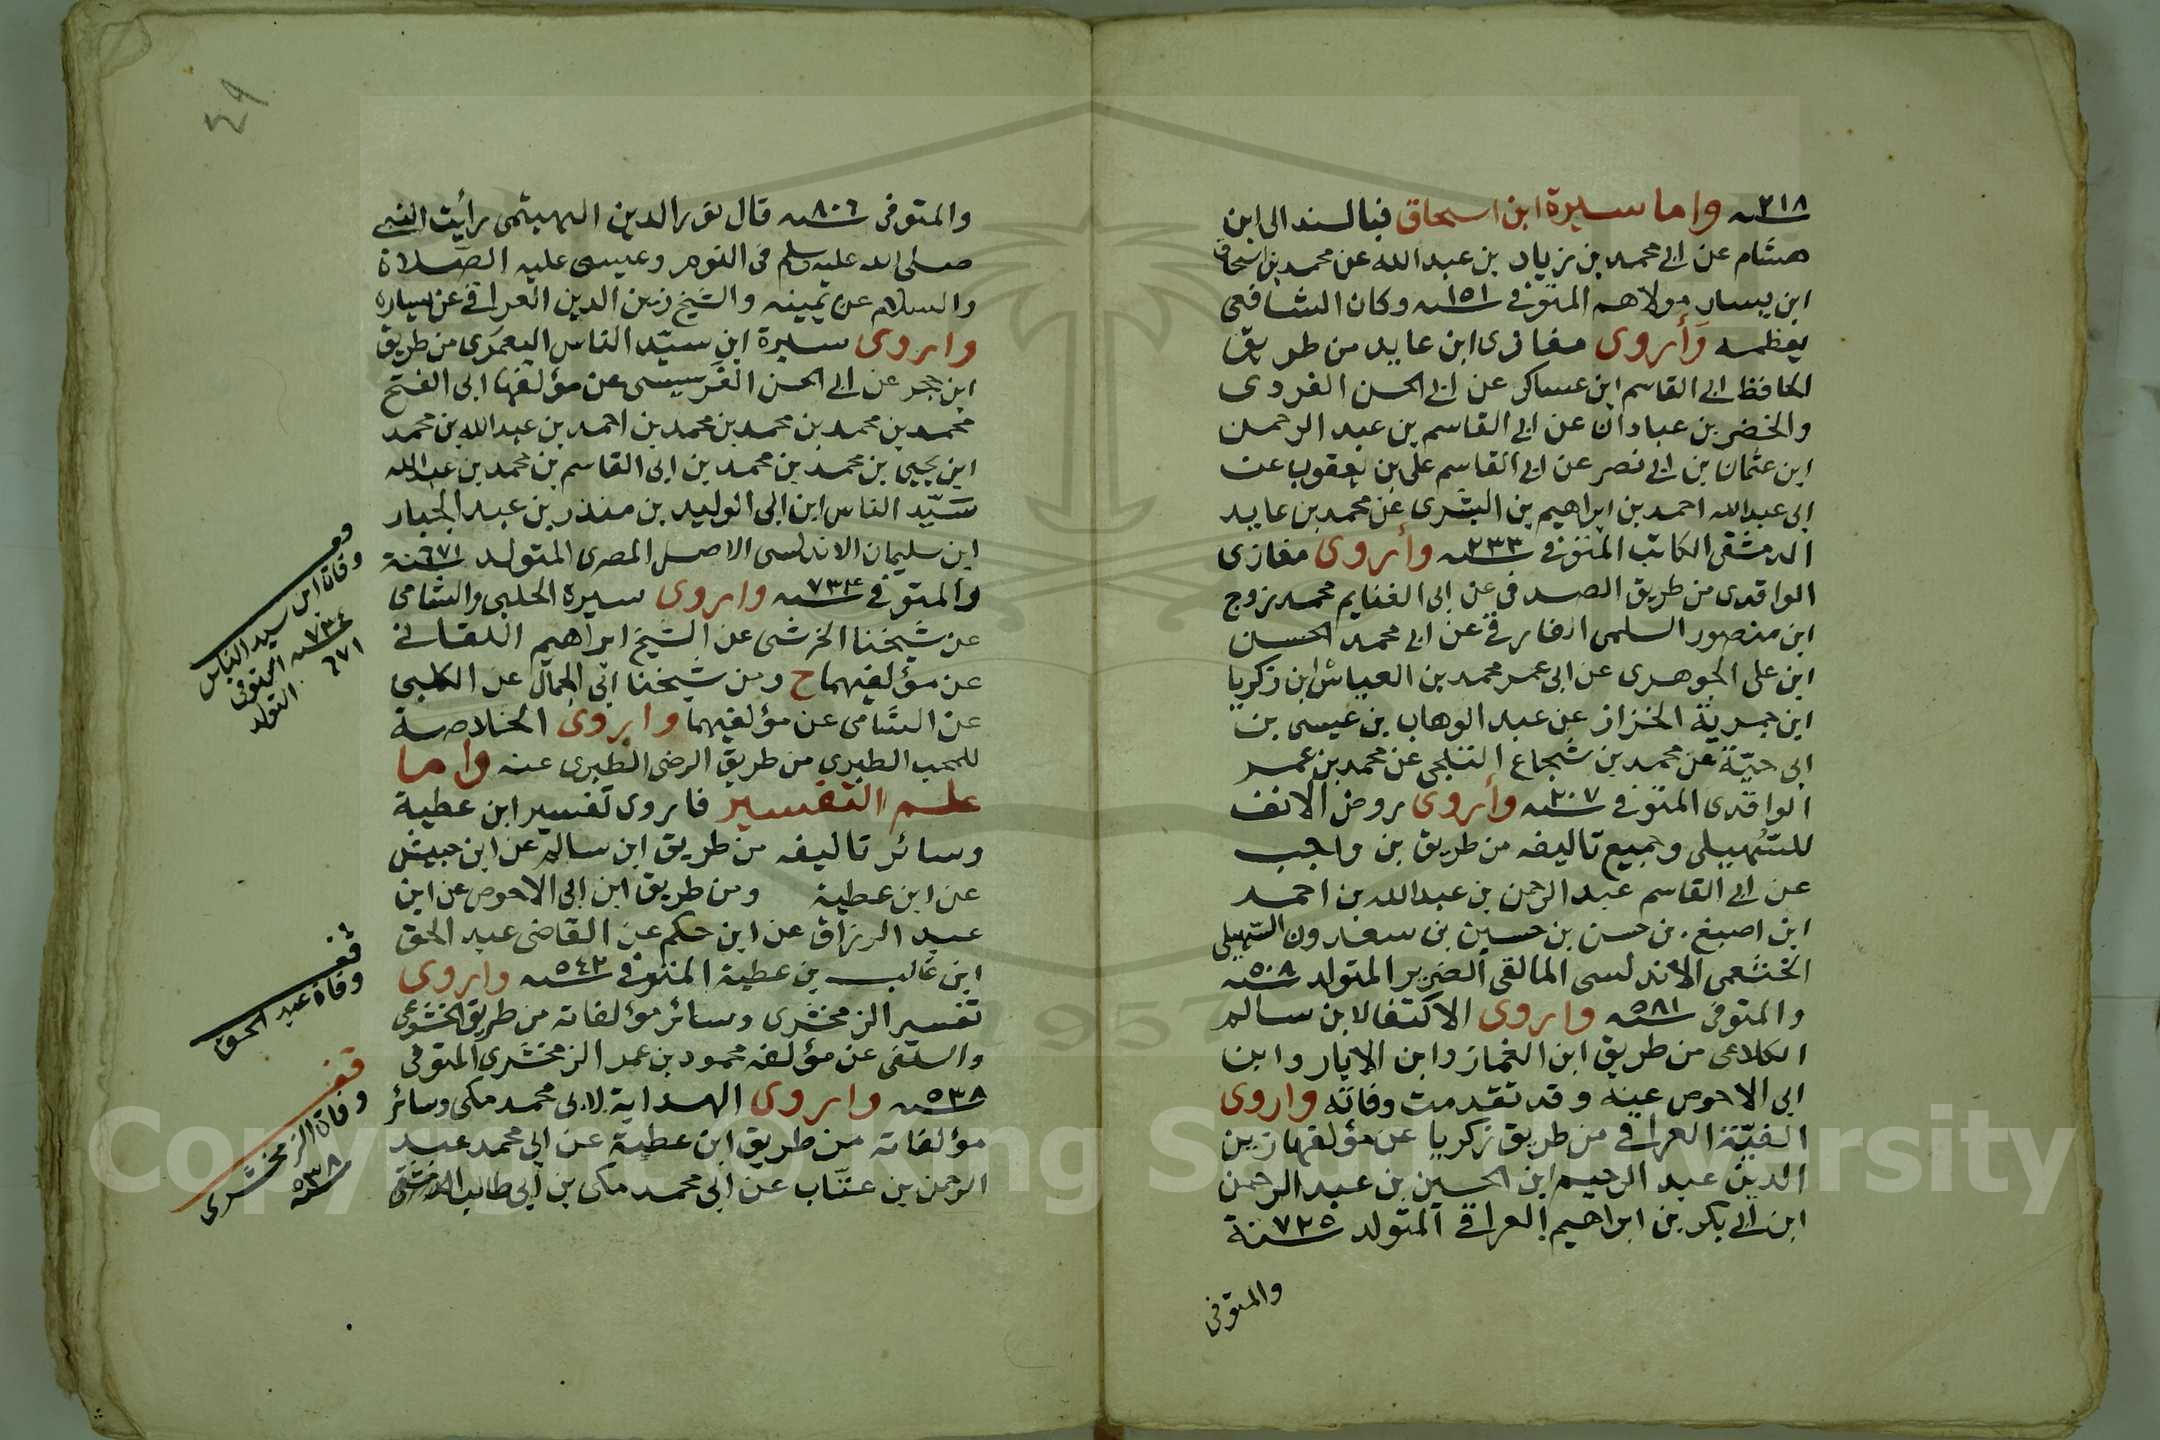 ٢١٨ سنه واما سيرة ابن اسحاق فبالسند الى ابن
هشام عن ابي محمد بن زياد بن عبد الله عن محمد بن اسحاق
ابن يسار مولاهم المتوفى ١٥١ سنه وكان الشافعي
يعظمه وأروى مغازى ابن عايد من طريق
الحافظ ابي القاسم ابن عساكر عن ابي الحسن الفروى
والخضر بن عبادان عن ابي القاسم بن عبد الرحمن
ابن عثمان بن ابي نصر عن ابي القاسم على بن يعقوب عن
ابى عبد الله احمد بن ابراهيم بن البشرى عن محمد بن عايد
الدمشقى الكاتب المتوفى ٢٣٣ سنه وأروى مغازى
الواقدى من طريق الصدفي عن ابى الغنايم محمد زوج
ابن منصور السلمى عن ابي محمد الحسن
ابن على الجوهرى عن ابى عمر محمد بن العباش ابن زكريا
ابن الخزاز عن عبد الوهاب بن عيسى بن
ابى حيّة عن محمد بن شجاع الثلجى عن محمد بن عمر
الواقدى المتوفى ٢٠٧ سنه وأروى روض الانف
للسّهيلى وجميع تاليفه من طريق بن واجب
عن ابي القاسم عبد الرحمن بن عبد الله بن احمد
ابن اصبغ بن حسن بن حسين بن سعدون السّهيلى
الخثعمى الاندلسى المالقى الضرير المتولد ٥٠٨ سنه
والمتوفى ٥٨١ سنه واروى الاكتفا لابن سالم
الكلاعى من طريق ابن الغماز وابن الابار وابن
ابى الاحوص عنه وقد تقدمت وفاته واروى
الفيّة العراقي من طريق زكريا عن مؤلفها زين
الدين عبد الرحيم ابن الحسين بن عبد الرحمن
ابن ابي بكر بن ابراهيم العراقي المتولد ٧٢٥ سنة
والمتوفى
٤٩
والمتوفى ٨٠٦ سنه قال نور الدين الهيثمى رأيت النبي
صلى الله عليه وسلم فى النوم وعيسى عليه الصلاة
والسلام عن يمينه والشيخ زين الدين العراقي عن يساره
واروى سيرة ابن سيّد الناس اليعمرى من طريق
ابن حجر عن ابي الحسن الفرسيسى عن مؤلفها ابى الفتح
محمد بن محمد بن محمد بن محمد بن احمد بن عبد الله بن محمد
ابن يحيى بن محمد بن محمد بن ابى القاسم بن محمد بن عبد الله
سيّد الناس ابن ابى الوليد بن منذر بن عبد الجبار
ابن سليمان الاندلسى الاصل المصرى المتولد ٦٧١ سنة
والمتوفى ٧٣٤ سنه واروى سيرة الحلبى والشامى
عن شيخنا الخرشى عن الشيخ ابراهيم اللقانى
عن مؤلفيهما ح ومن شيخنا ابى الجمال عن الكلبى
عن الشامى عن مؤلفيهما واروى الخلاصة
للمحب الطبرى من طريق الرضى الطبرى عنه واما
علم التفسير فاروى تفسير ابن عطية
وسائر تاليفه من طريق ابن سالم عن ابن حبيش
عن ابن عطية ومن طريق ابن ابى الاحوص عن ابن
عبد الرزاق عن ابن حكم عن القاضى عبد الحق
ابن غالب بن عطية المتوفى ٥٤٢ سنه واروى
تفسير الزمخشرى وسائر مؤلفاته من طريق الخشوعى
والسلفى عن مؤلفه محمود بن عمر الزمخشرى المتوفى
٥٣٨ سنه واروى الهداية لابى محمد مكى وسائر
مؤلفاته من طريق ابن عطية عن ابي محمد عبد
الرحمن بن عتّاب عن ابى محمد مكى بن ابى طالب
قف
وفاة ابن سيد الناس
٧٣٤ سنه المتوفى
٦٧١ المتولد
قف
وفاة عبد الحق
قف
وفاة الزمخشرى
٥٣٨ سنه
1957
Copyright © King Saud University